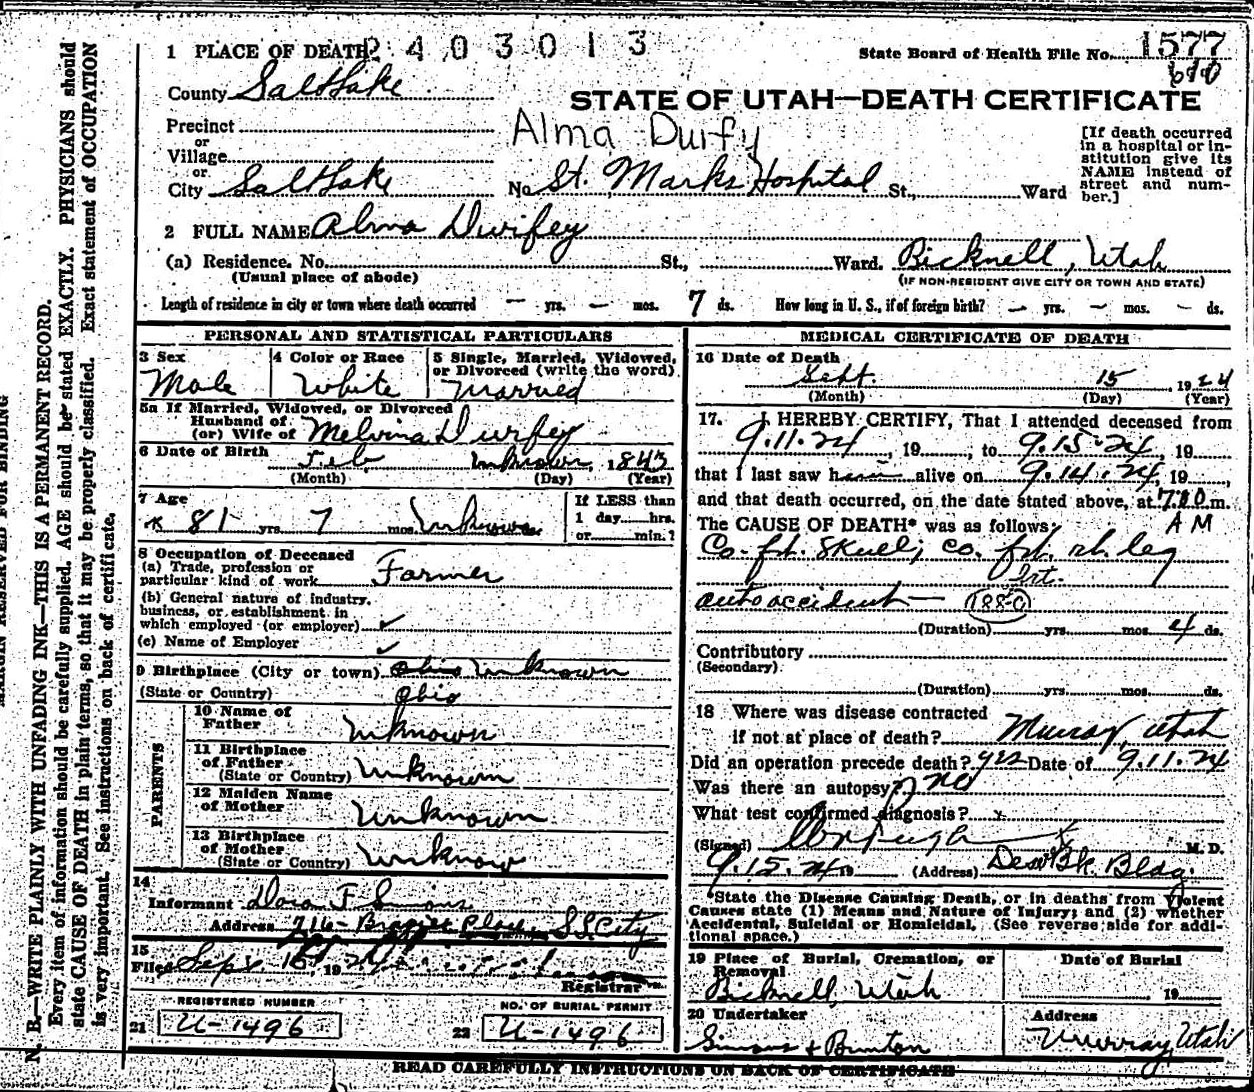 1 PLACE OF DEATH 2403013 State Board of Health File No. 1577
610
County Salt Lake
STATE OF UTAH—DEATH CERTIFICATE
Precinct
or
Village
or
City Salt Lake No. St. Marks Hospital St., Ward
Alma Durfy
[If death occurred
in a hospital or in-
stitution give its
NAME instead of
street and num-
ber.]
2 FULL NAME Alma Durfey
(a) Residence. No. St., Ward. Bicknell, Utah
(Usual place of abode) (IF NON-RESIDENT GIVE CITY OR TOWN AND STATE)
Length of residence in city or town where death occurred — yrs. — mos. 7 ds. How long in U. S., if of foreign birth? — yrs. — mos. — ds.
PERSONAL AND STATISTICAL PARTICULARS
3 Sex
Male
4 Color or Race
White
5 Single, Married, Widowed,
or Divorced (write the word)
Married
5a If Married, Widowed, or Divorced
Husband of
(or) Wife of Melvina Durfey
6 Date of Birth Feb Unknown, 1843
(Month) (Day) (Year)
7 Age
81 yrs. 7 mos. Unknown
If LESS than
1 day hrs.
or min.?
8 Occupation of Deceased
(a) Trade, profession or
particular kind of work Farmer
(b) General nature of industry,
business, or establishment in
which employed (or employer) ✓
(c) Name of Employer ✓
9 Birthplace (City or town) Ohio Unknown
(State or Country) Ohio
PARENTS
10 Name of
Father Unknown
11 Birthplace
of Father
(State or Country) Unknown
12 Maiden Name
of Mother Unknown
13 Birthplace
of Mother
(State or Country) Unknow
14
Informant Dora F Simons
Address 716 Place S L City
15
Filed Sept. 1924
Registrar
REGISTERED NUMBER
21 U-1496
NO. OF BURIAL PERMIT
22 U-1496
MEDICAL CERTIFICATE OF DEATH
16 Date of Death
Sept. 15, 1924
(Month) (Day) (Year)
17. I HEREBY CERTIFY, That I attended deceased from
9.11.24, 19, to 9.15.24, 19
that I last saw him alive on 9.14.24, 19,
and that death occurred, on the date stated above, at 7:00 m.
The CAUSE OF DEATH* was as follows: AM
Co. frt. Skull; co. frt. rt. leg
auto accident — 188-c
(Duration) yrs. mos. 4 ds.
Contributory
(Secondary)
(Duration) yrs. mos. ds.
18 Where was disease contracted
if not at place of death? Murray, Utah
Did an operation precede death? yes Date of 9.11.24
Was there an autopsy? no
What test confirmed diagnosis? x
(Signed) Pugh M. D.
9.15.24 19 (Address) Bk. Bldg.
*State the Disease Causing Death, or in deaths from Violent
Causes state (1) Means and Nature of Injury; and (2) whether
Accidental, Suicidal or Homicidal, (See reverse side for addi-
tional space.)
19 Place of Burial, Cremation, or
Removal
Bicknell, Utah
Date of Burial
19
20 Undertaker
Simons & Bunton
Address
Murray, Utah
READ CAREFULLY INSTRUCTIONS ON BACK OF CERTIFICATE
MARGIN RESERVED FOR BINDING
N. B.—WRITE PLAINLY WITH UNFADING INK—THIS IS A PERMANENT RECORD.
Every item of information should be carefully supplied. AGE should be stated EXACTLY. PHYSICIANS should
state CAUSE OF DEATH in plain terms, so that it may be properly classified. Exact statement of OCCUPATION
is very important. See instructions on back of certificate.